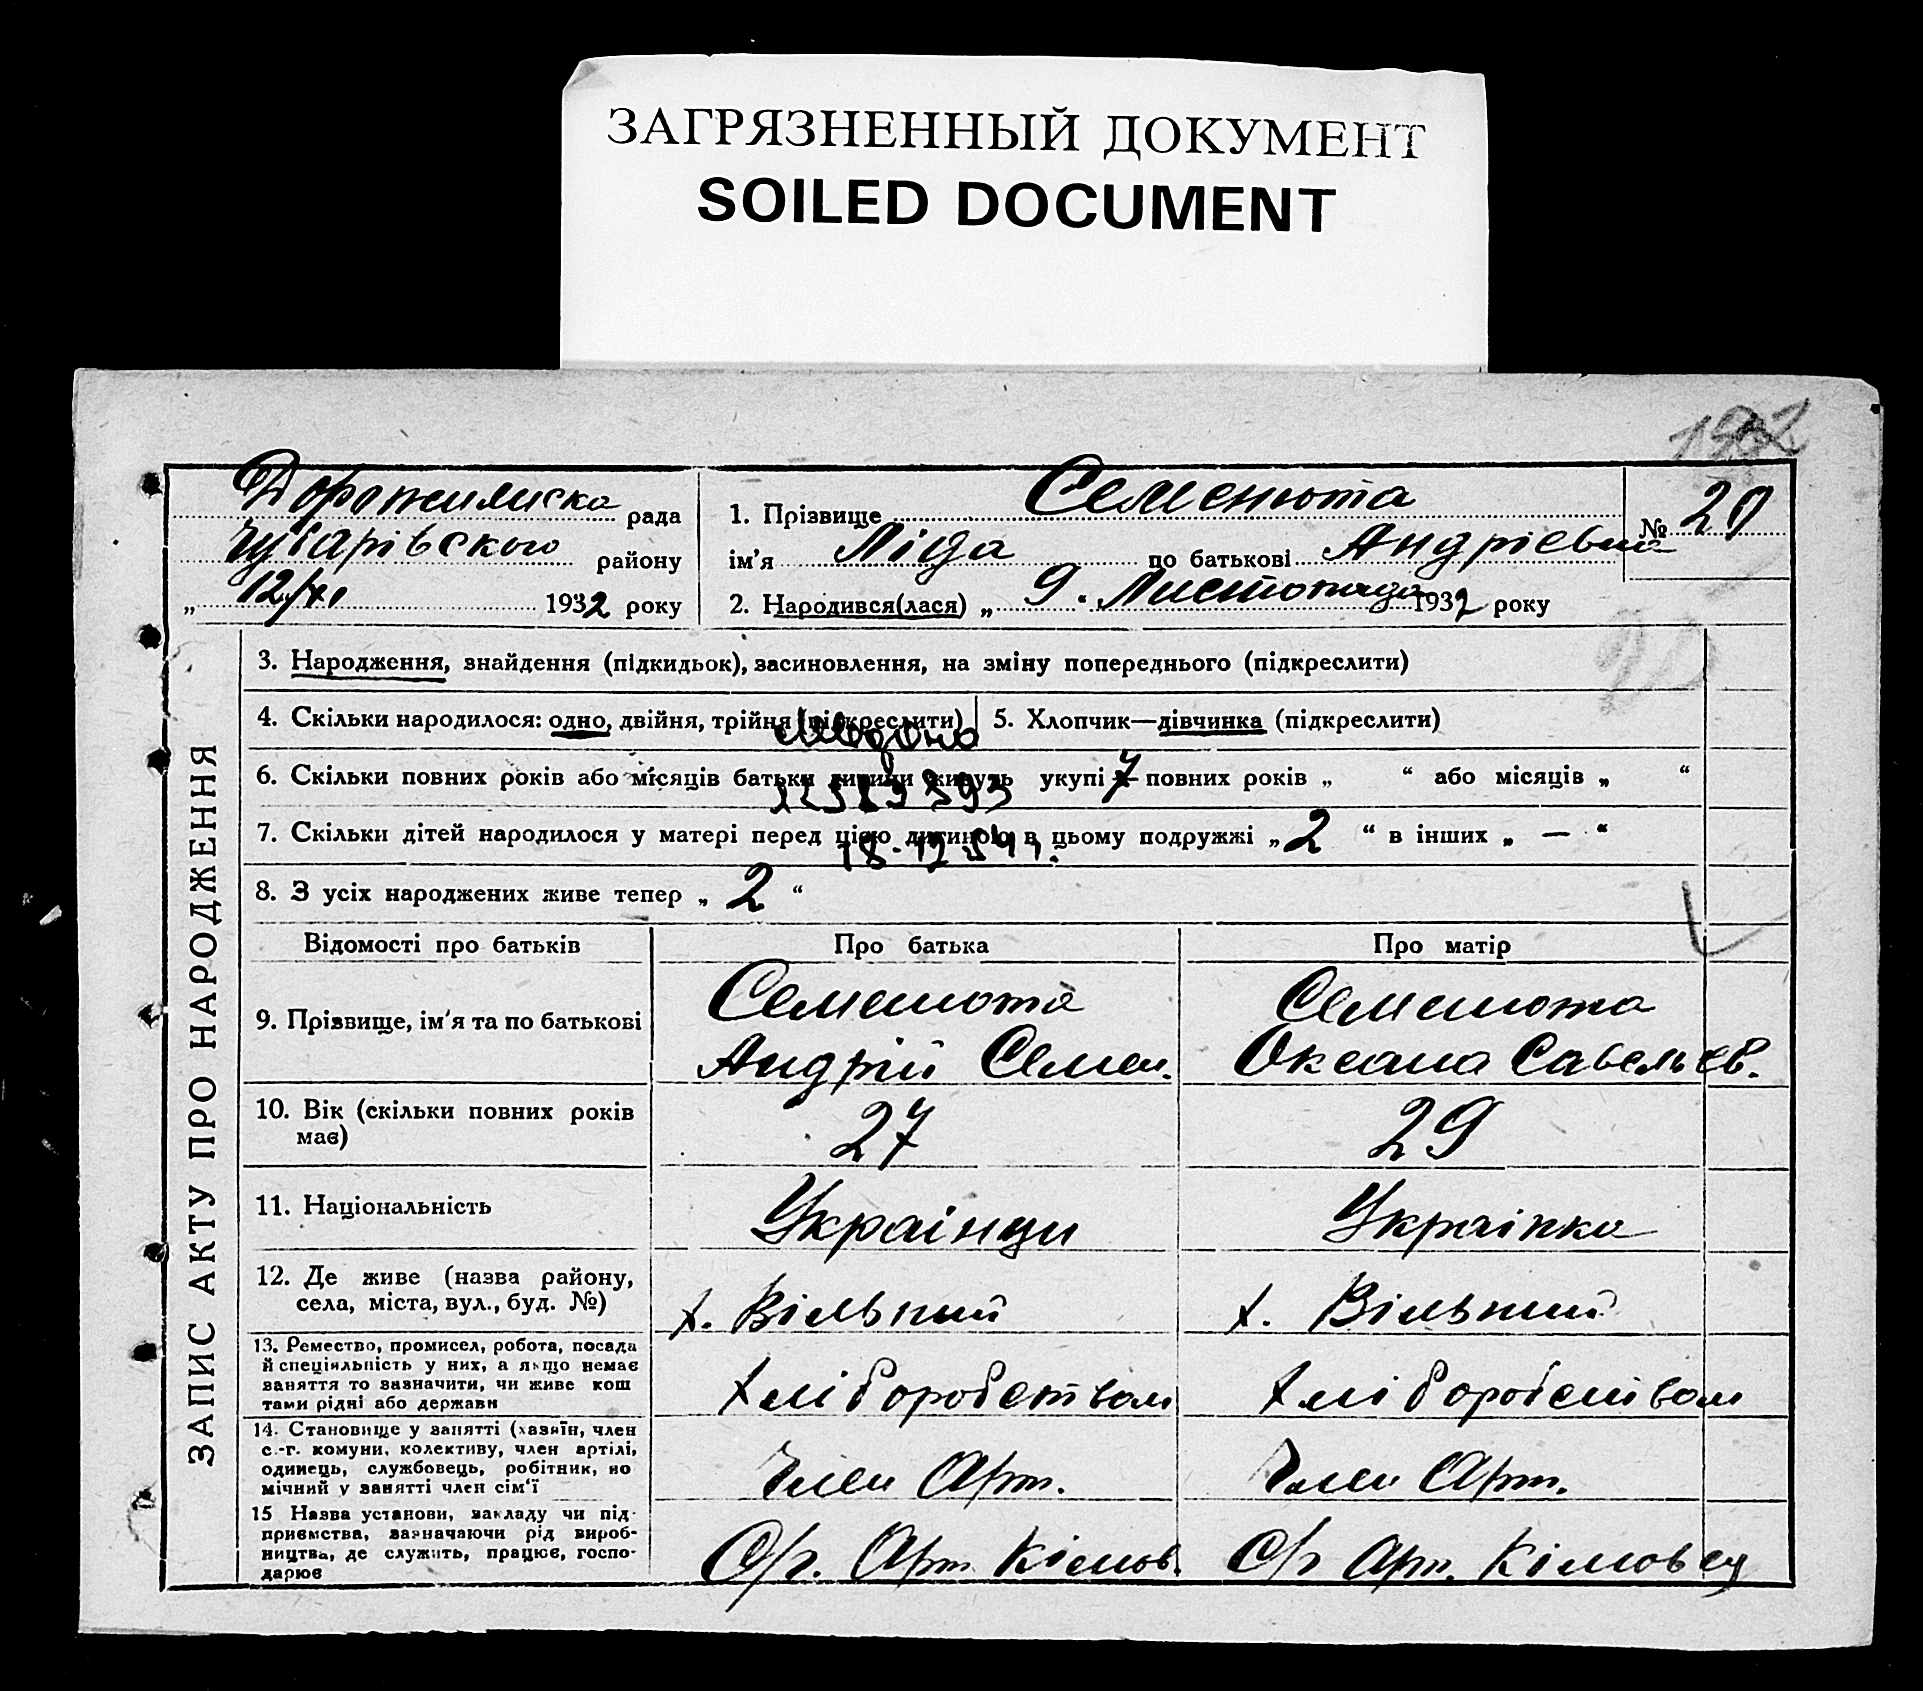 ЗАГРЯЗНЕННЫЙ ДОКУМЕНТ
SOILED DOCUMENT
рада
Чубарівського району
„ 12/XI 1932 року
1. Прізвище Семенюта
ім'я Ліда по батькові Андріевна
2. Народився(лася) „ 9. Листопада 1932 року
№ 20
ЗАПИС АКТУ ПРО НАРОДЖЕННЯ
3. Народження, знайдення (підкидьок), засиновлення, на зміну попереднього (підкреслити)
4. Скільки народилося: одно, двійня, трійня (підкреслити)
5. Хлопчик—дівчинка (підкреслити)
6. Скільки повних років або місяців батьки дитини живуть укупі 7 повних років „ “ або місяців „ “
7. Скільки дітей народилося у матері перед цією дитиною в цьому подружжі „ 2 “ в інших „ — “
8. З усіх народжених живе тепер „ 2 “
Відомості про батьків Про батька Про матір
9. Прізвище, ім'я та по батькові
Семенюта
Андрій Семен.
Семенюта
Оксана Савельев.
10. Вік (скільки повних років
має)
27
29
11. Національність
Українци
Українка
12. Де живе (назва району,
села, міста, вул., буд. №)
х. Вільний
х. Вільний
13. Ремество, промисел, робота, посада
й спеціяльність у них, а якщо немає
заняття то зазначити, чи живе кош
тами рідні або держави
хліборобством
хліборобством
14. Становище у занятті (хазяїн, член
с.-г. комуни, колективу, член артілі,
одинець, службовець, робітник, по
мічний у занятті член сім'ї
Член Арт.
Член Арт.
15 Назва установи, закладу чи під-
приємства, зазначаючи рід вироб-
ництва, де служить, працює, госпо-
дарює
С/г. Арт Кімов.
С/г Арт. Кімовец